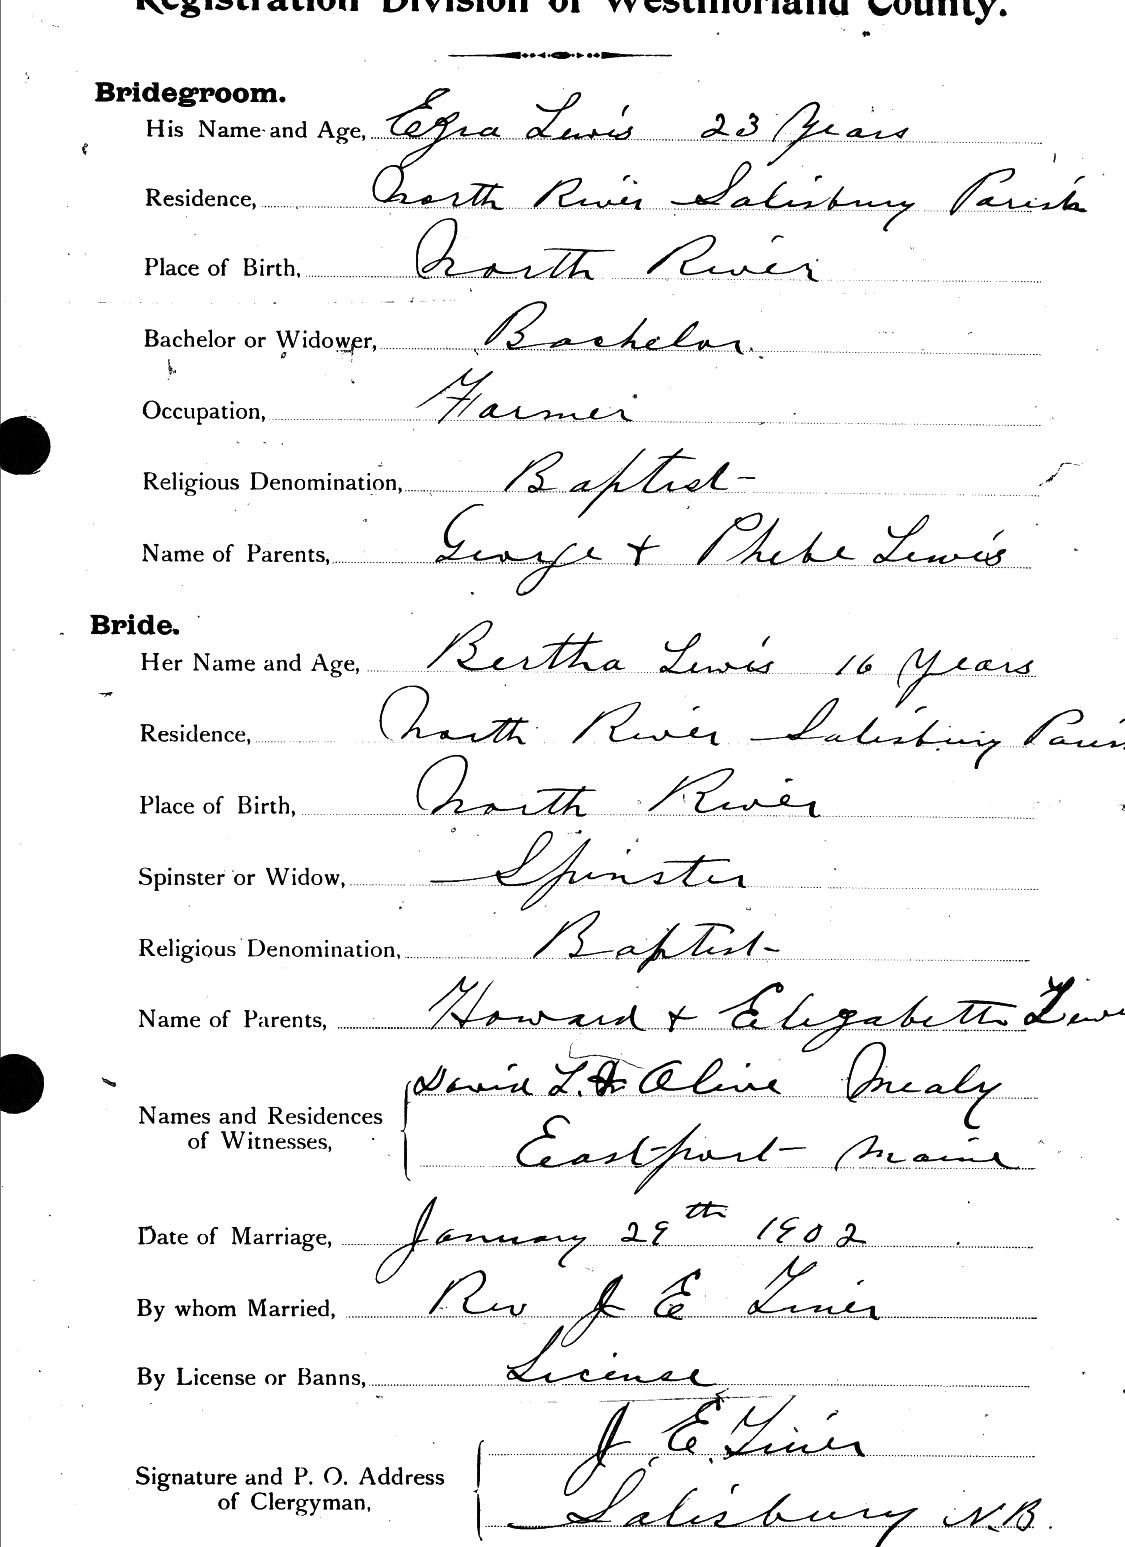 Registration Division of Westmorland County.
Bridegroom.
His Name and Age, Ezra Lewis 23 Years
Residence, North River Salisbury Parish
Place of Birth, North River
Bachelor or Widower, Bachelor.
Occupation, Farmer
Religious Denomination, Baptist
Name of Parents, George + Phebe Lewis
Bride.
Her Name and Age, Bertha Lewis 16 Years
Residence, North River Salisbury Paris
Place of Birth, North River
Spinster or Widow, Spinster
Religious Denomination, Baptist
Name of Parents, Howard + Elizabeth Lewi
David L. & Olive Mealy
Names and Residences
of Witnesses,
Eastport Maine
Date of Marriage, January 29th 1902
By whom Married, Rev J E Tiner
By License or Banns, License
J. E. Tiner
Signature and P. O. Address
of Clergyman,
Salisbury N.B.